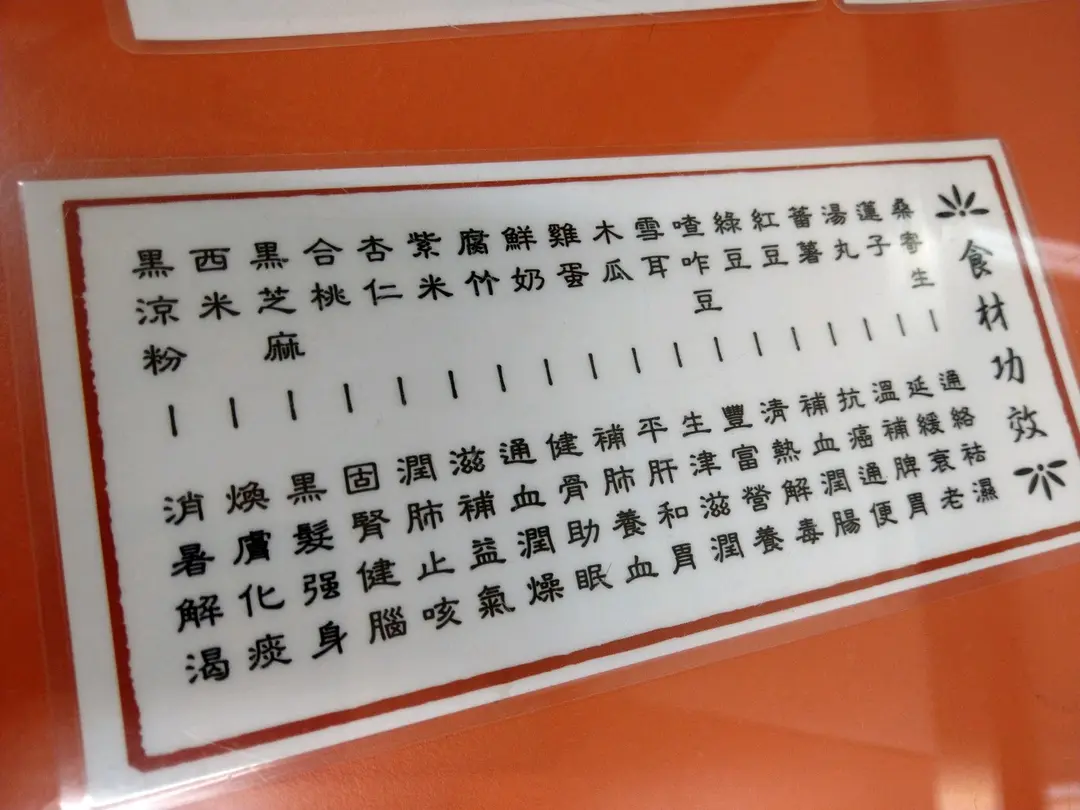 食材功效
桑寄生—通絡祛濕
蓮子—延緩衰老
湯丸—溫補脾胃
蕃薯—抗癌通便
紅豆—補血潤腸
綠豆—清熱解毒
喳咋豆—豐富營養
雪耳—生津滋潤
木瓜—平肝和胃
雞蛋—補肺養血
鮮奶—健骨助眠
腐竹—通血潤燥
紫米—滋補益氣
杏仁—潤肺止咳
合桃—固腎健腦
黑芝麻—黑髮强身
西米—煥膚化痰
黑涼粉—消暑解渴